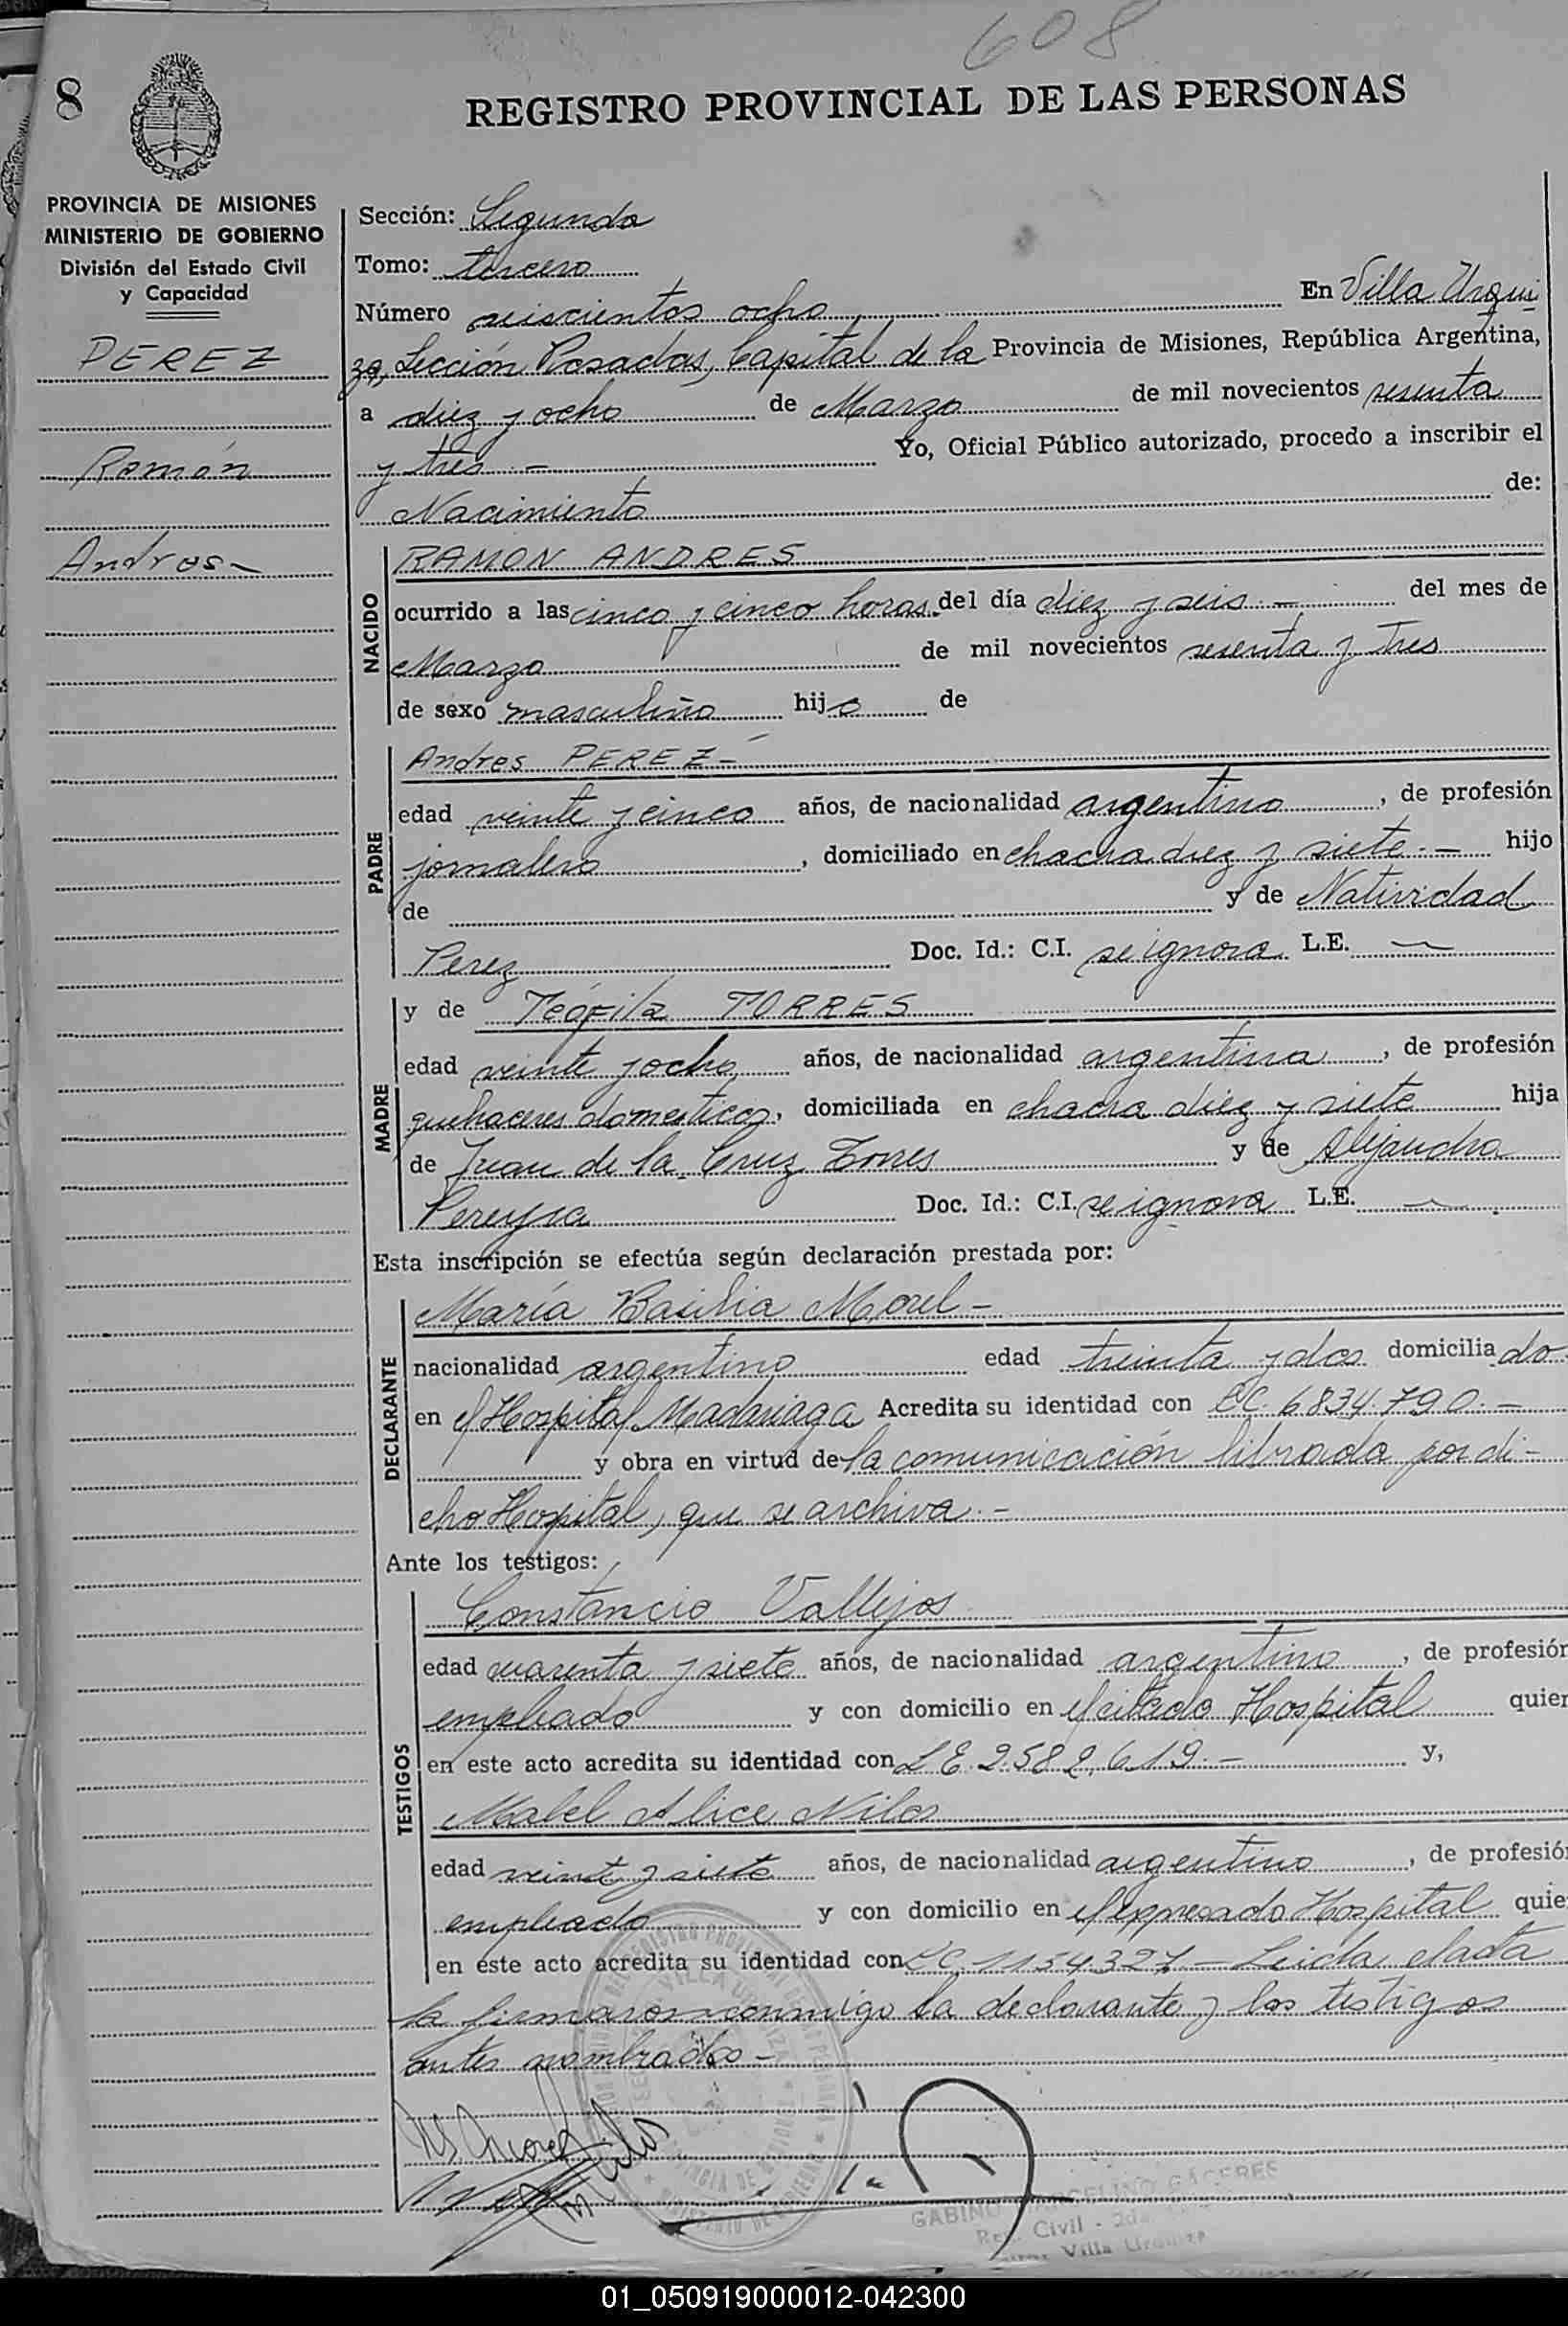 608
8
REGISTRO PROVINCIAL DE LAS PERSONAS
PROVINCIA DE MISIONES
MINISTERIO DE GOBIERNO
División del Estado Civil
y Capacidad
PEREZ
Ramón
Andres -
Sección: Segunda
Tomo: tercero
Número seiscientos ocho En Villa Urqui
za, Sección Posadas, Capital de la Provincia de Misiones, República Argentina,
a diez y ocho de Marzo de mil novecientos sesenta
y tres - Yo, Oficial Público autorizado, procedo a inscribir el
Nacimiento de:
NACIDO
RAMON ANDRES
ocurrido a las cinco y cinco horas del día diez y seis - del mes de
Marzo de mil novecientos sesenta y tres
de sexo masculino hijo de
PADRE
Andres PEREZ -
edad veinte y cinco años, de nacionalidad argentino, de profesión
jornalero, domiciliado en chacra diez y siete - hijo
de y de Natividad
Perez Doc. Id.: C.I. se ignora L.E. —
MADRE
y de Teófila TORRES
edad veinte y ocho años, de nacionalidad argentina, de profesión
quehaceres domesticos, domiciliada en chacra diez y siete hija
de Juan de la Cruz Torres y de Alejandra
Pereyra Doc. Id.: C.I. se ignora L.E. —
Esta inscripción se efectúa según declaración prestada por:
DECLARANTE
María Basilia Morel -
nacionalidad argentino edad treinta y dos domiciliado
en el Hospital Madariaga Acredita su identidad con LC. 6834.790. -
y obra en virtud de la comunicación librada por di-
cho Hospital, que se archiva. -
Ante los testigos:
TESTIGOS
Constancio Vallejos
edad cuarenta y siete años, de nacionalidad argentino, de profesión
empleado y con domicilio en el citado Hospital quien
en este acto acredita su identidad con L E. 2.582.619. - y,
Mabel Alice Nilos
edad veinte y siete años, de nacionalidad argentino, de profesión
empleado y con domicilio en el expresado Hospital quie
en este acto acredita su identidad con LC. 1154327 - Leida el acta
la firmaron conmigo la declarante y los testigos
antes nombrados -
GABINO MARCELINO CACERES
Reg. Civil - 2da.
Villa Urquiza
01_050919000012-042300